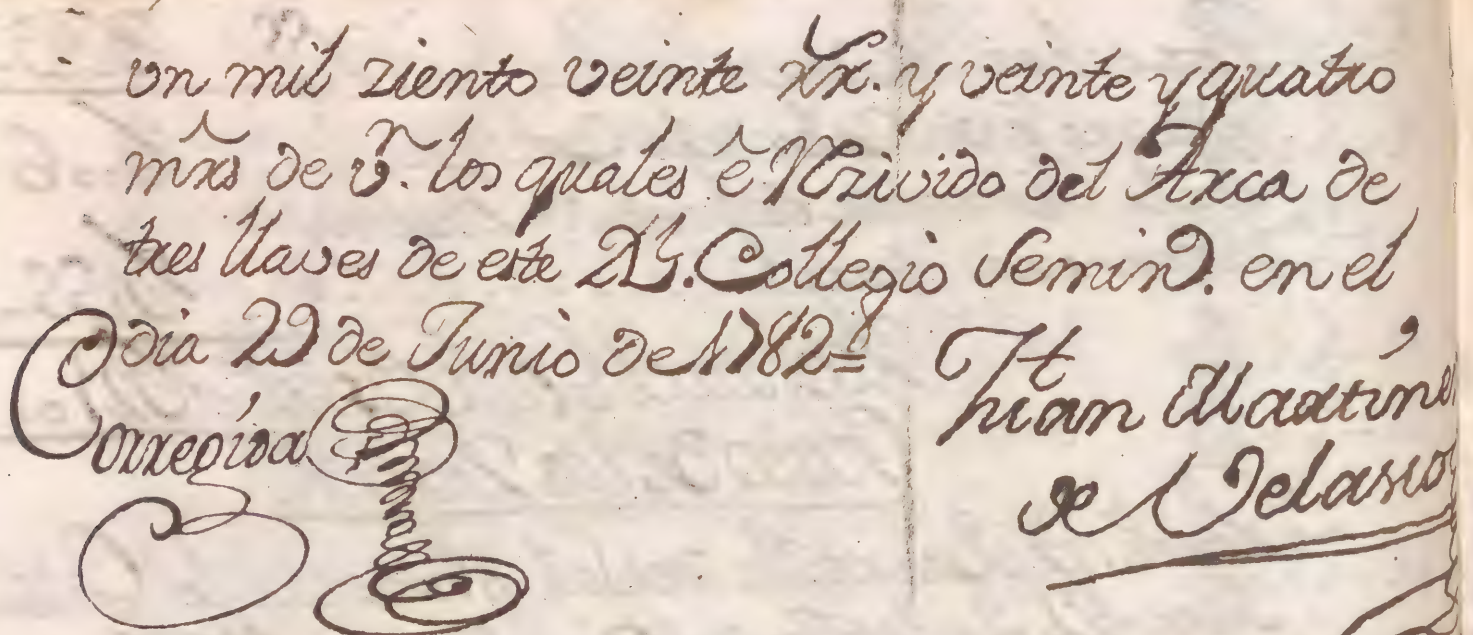 un mil ziento veinte rr. y veinte y quatro
mrs de vn. los quales è Rzivido del Arca de
tres llaves de este Rl. Collegio Semino. en el
dia 29 de Junio de 1782=
Corregida
Juan Martinez
de Velasco